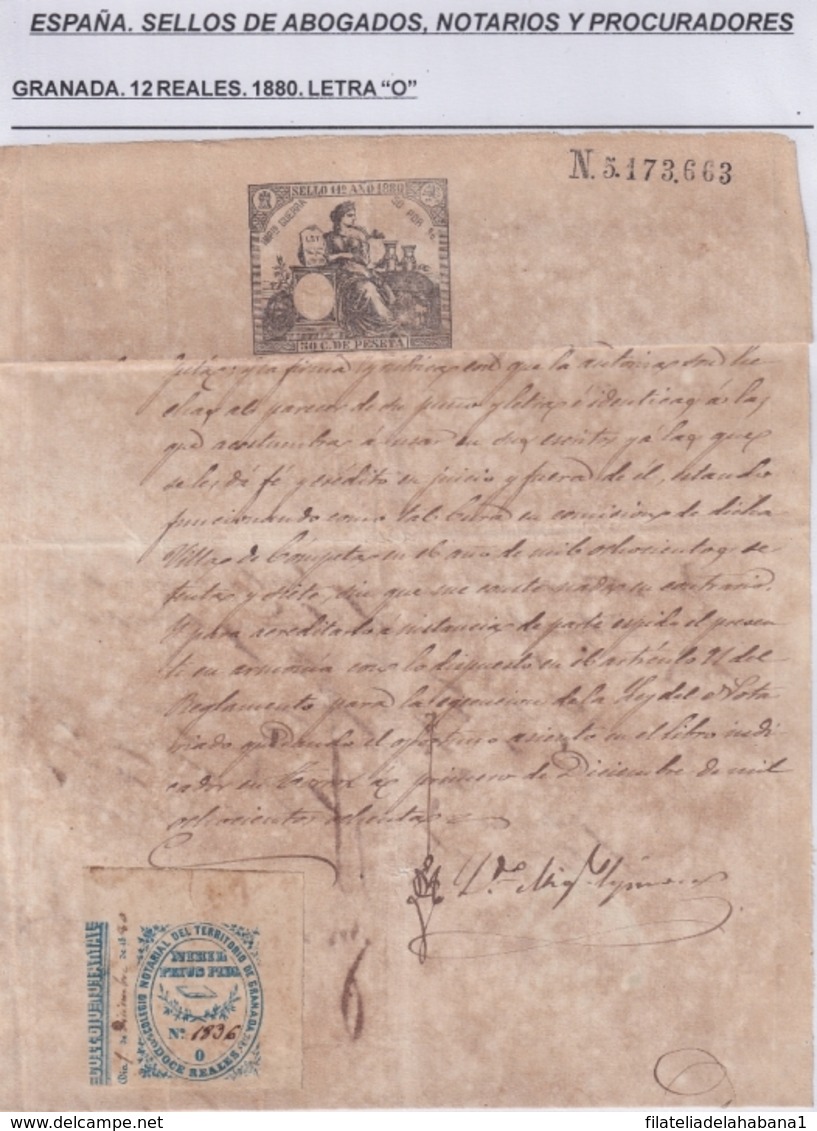 ESPAÑA. SELLOS DE ABOGADOS, NOTARIOS Y PROCURADORES
GRANADA. 12 REALES. 1880. LETRA “O”
N. 5.173.663
SELLO 11º AÑO 1880
IMPTO GUERRA 50 POR %
LEY
50 C. DE PESETA
y la firma y rubrica con que la autoriza son he
chas al parecer de su puño y letra é identicas á las
que acostumbra á usar en sus escritos y á las que
se les dá fé y crédito en juicio y fuera de el, estando
funcionando como tal Cura en comision de dicha
Villa de Cómpeta en el año de mil ochocientos se
tenta y siete, sin que me conste nada en contrario.
Y para acreditarlo á instancia de parte espido el presen
te en armonía con lo dispuesto en el artículo 91 del
Reglamento para la ejecucion de la Ley del Nota
riado quedando el oportuno asiento en el libro indi
cador en á primero de Diciembre de mil
ochocientos ochenta
Ldo. Migl.
COLEGIO NOTARIAL DEL TERRITORIO DE GRANADA
NIHIL
PRIUS FIDE
Nº 1836
O
DOCE REALES
Dia 1 de Diciembre de 1880
6
filateliadelahabana1